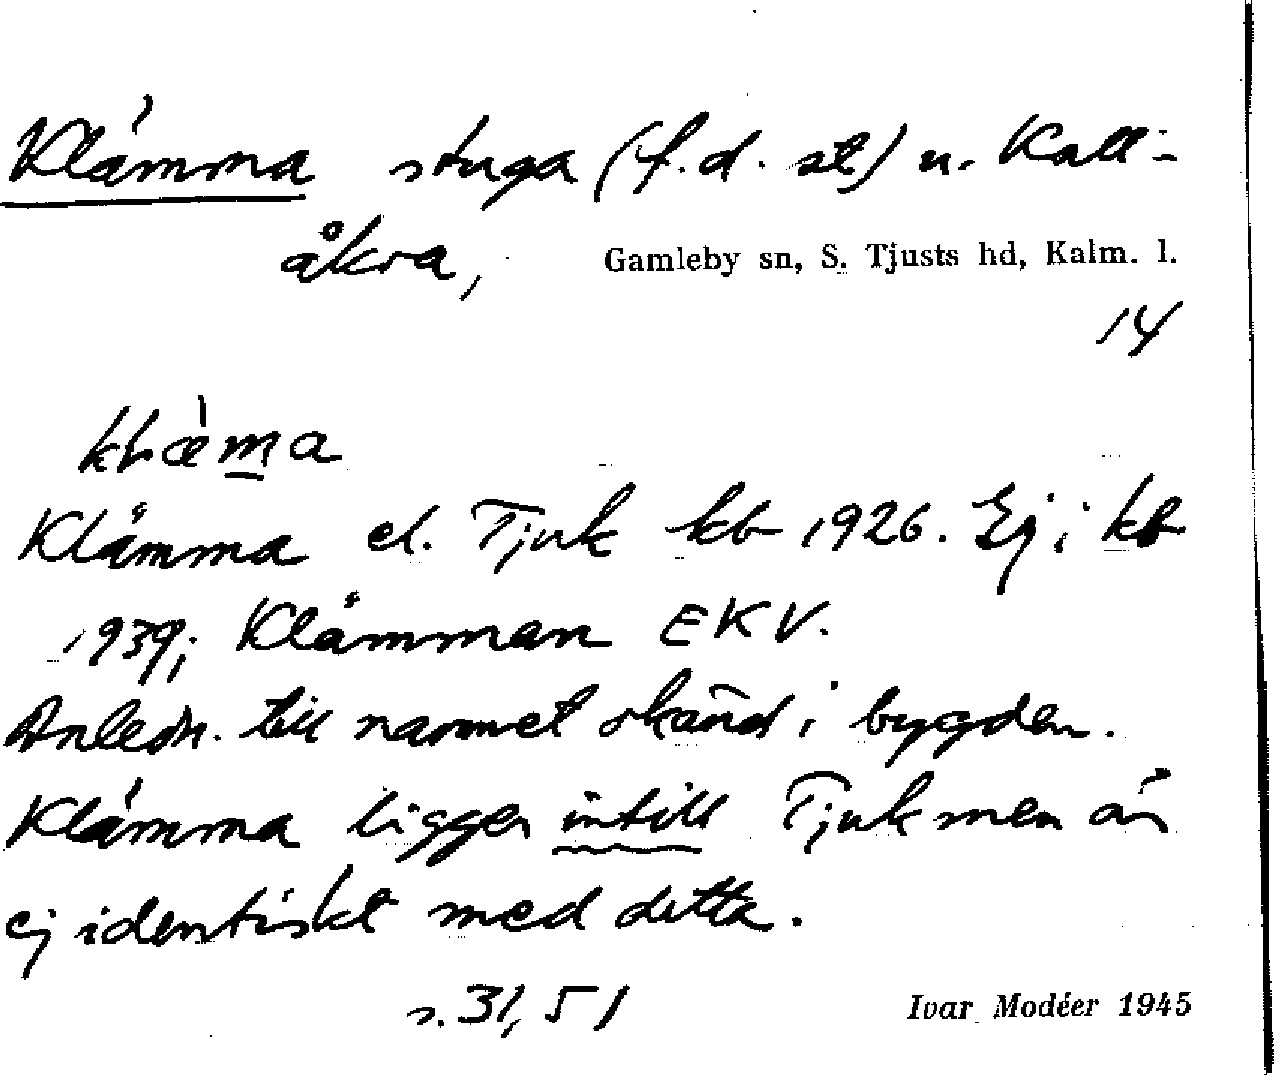 Klämma stuga (f.d. st) u. Kall-
åkra, Gamleby sn, S. Tjusts hd, Kalm. l.
14
Klämma el. Tjuk kb 1926. Ej i kb
1939; Klämman EKV.
Anledn. till namnet okänd i bygden.
Klämma ligger intill Tjuk men är
ej identiskt med detta.
s. 31, 51
Ivar Modéer 1945